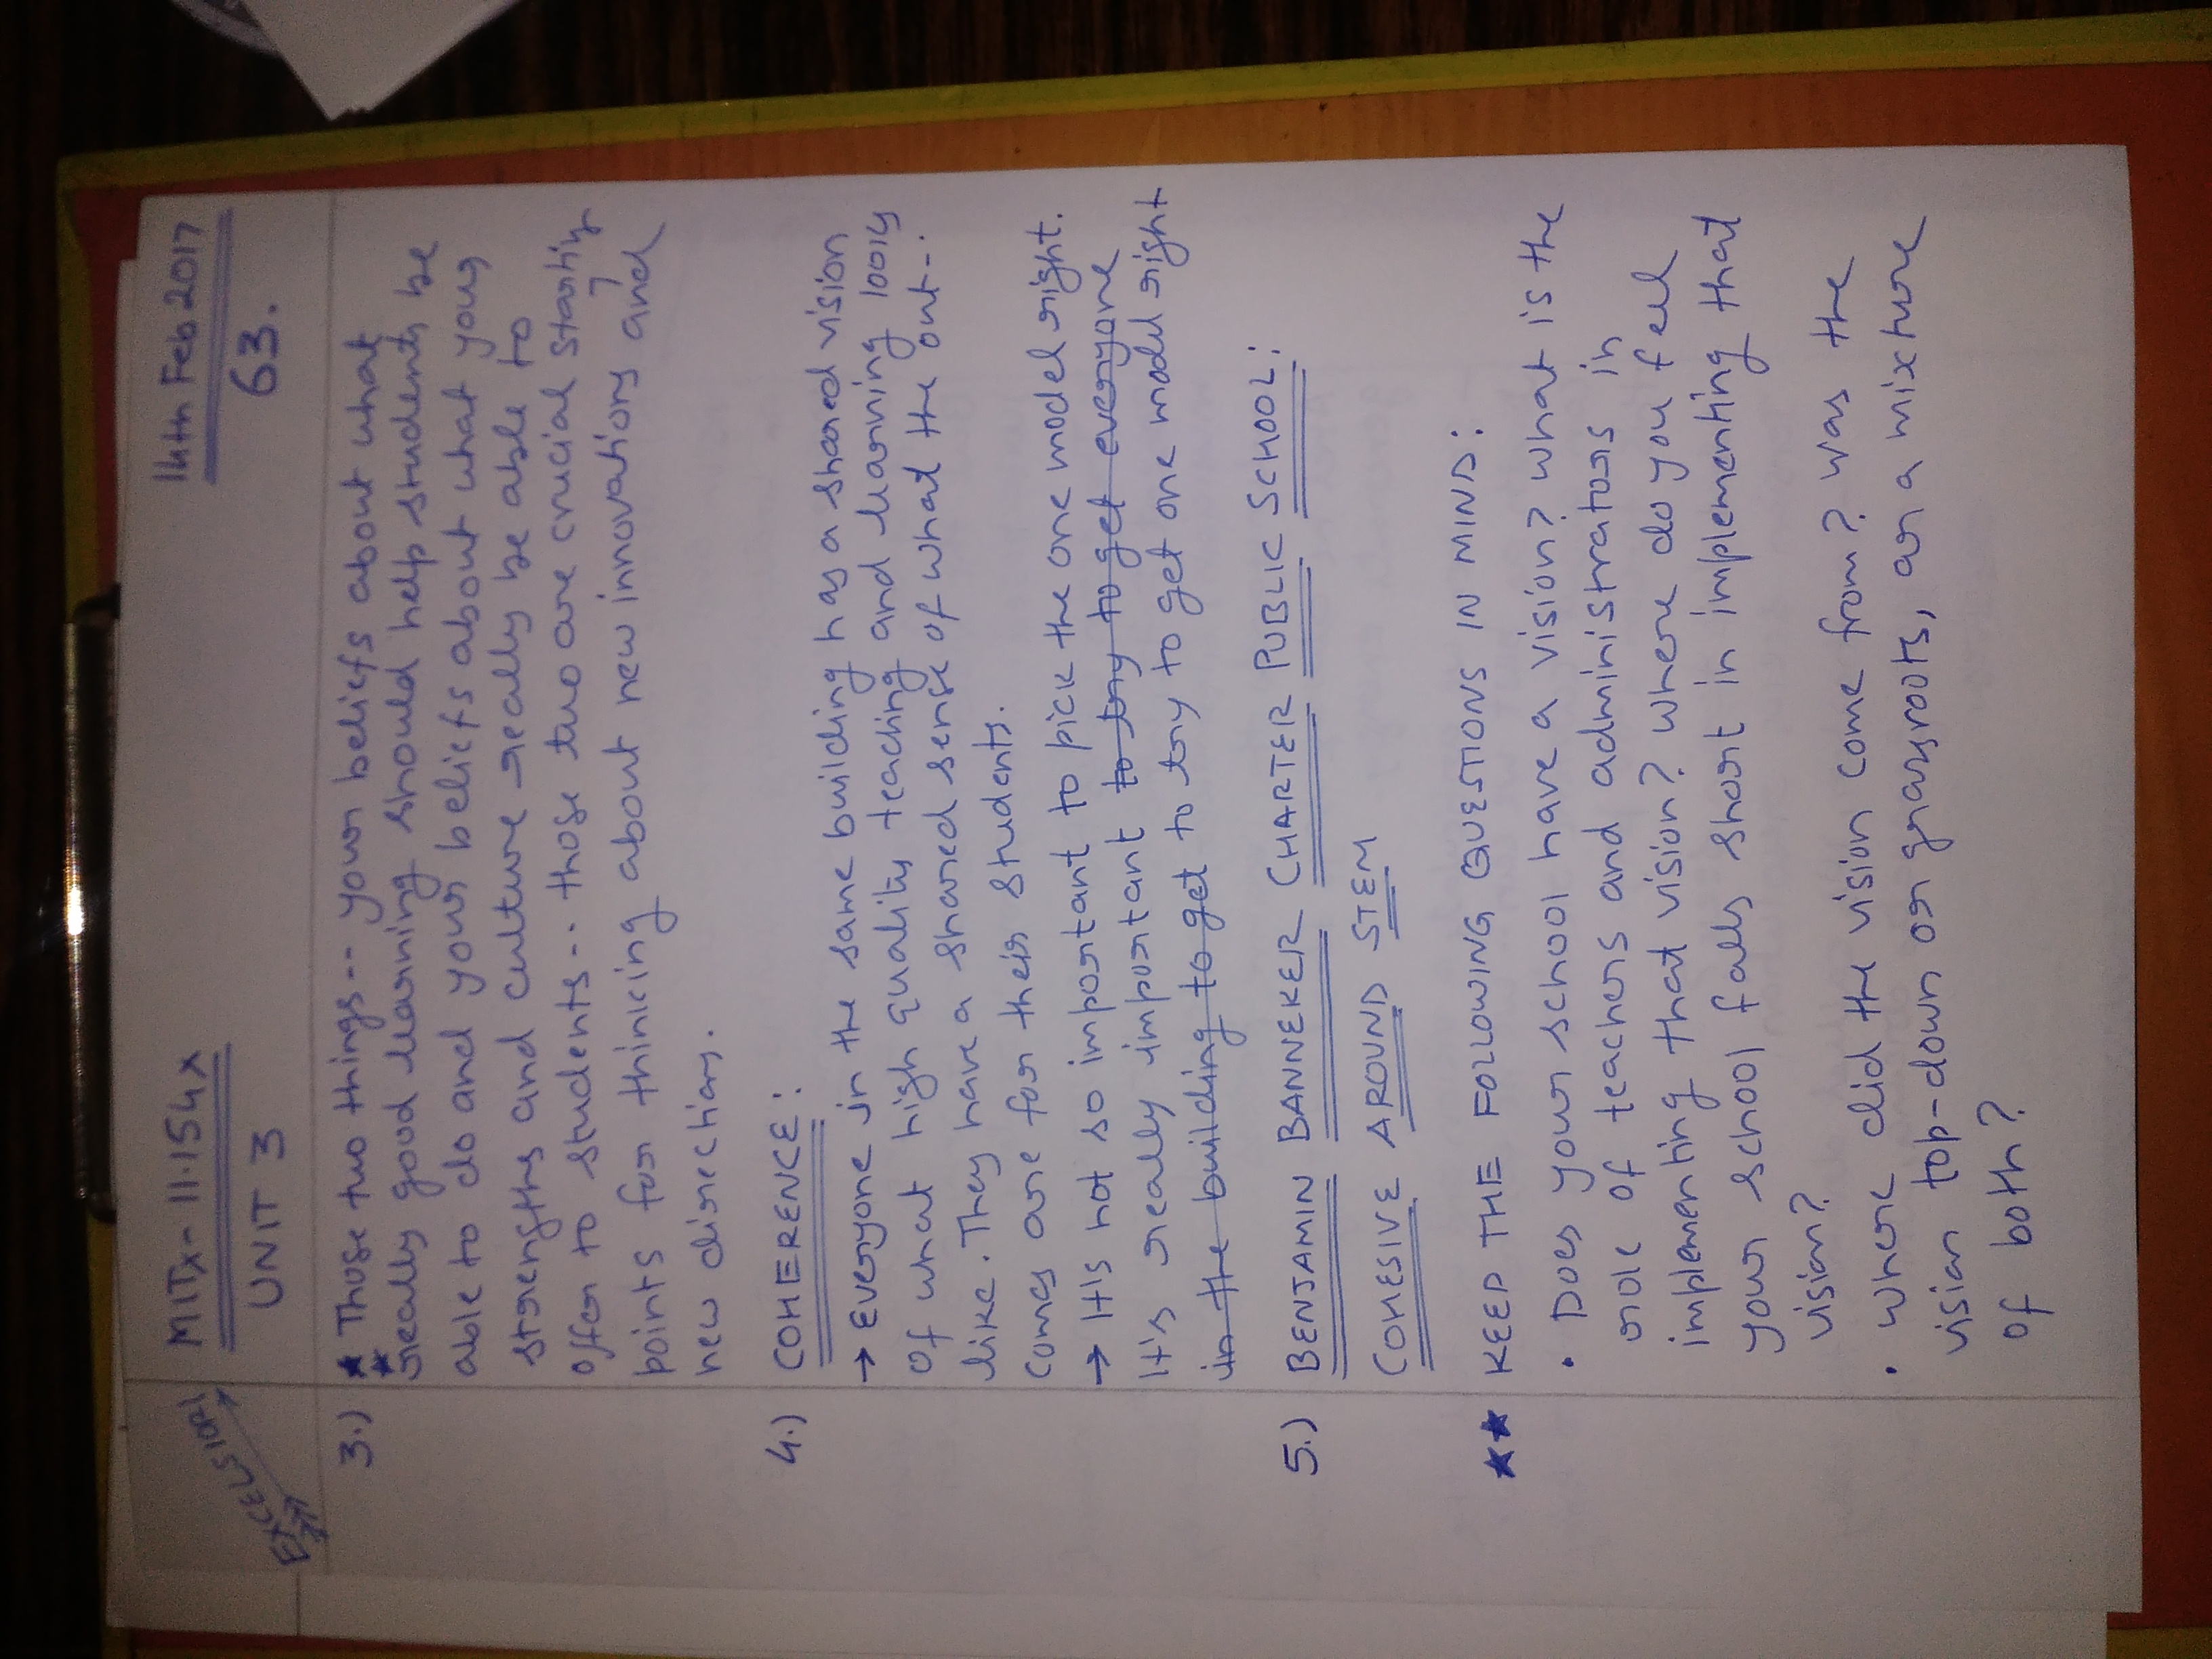 EXCELSIOR!
MITx- 11.154x
14th Feb 2017
UNIT 3
63.
3.) ★ Those two things -- your beliefs about what
★ really good learning should help students be
able to do and your beliefs about what your
strengths and culture really be able to
offer to students -- those two are crucial starting
points for thinking about new innovations and
new directions.
4.) COHERENCE:
→ Everyone in the same building has a shared vision
of what high quality teaching and learning looks
like. They have a shared sense of what the out-
comes are for their students.
→ It's not so important to pick the one model right.
It's really important to try to get everyone
in the building to get to try to get one model right
5.) BENJAMIN BANNEKER CHARTER PUBLIC SCHOOL:
COHESIVE AROUND STEM
★★ KEEP THE FOLLOWING QUESTIONS IN MIND:
• Does your school have a vision? What is the
role of teachers and administrators in
implementing that vision? Where do you feel
your school falls short in implementing that
vision?
• Where did the vision come from? Was the
vision top-down or grassroots, or a mixture
of both?